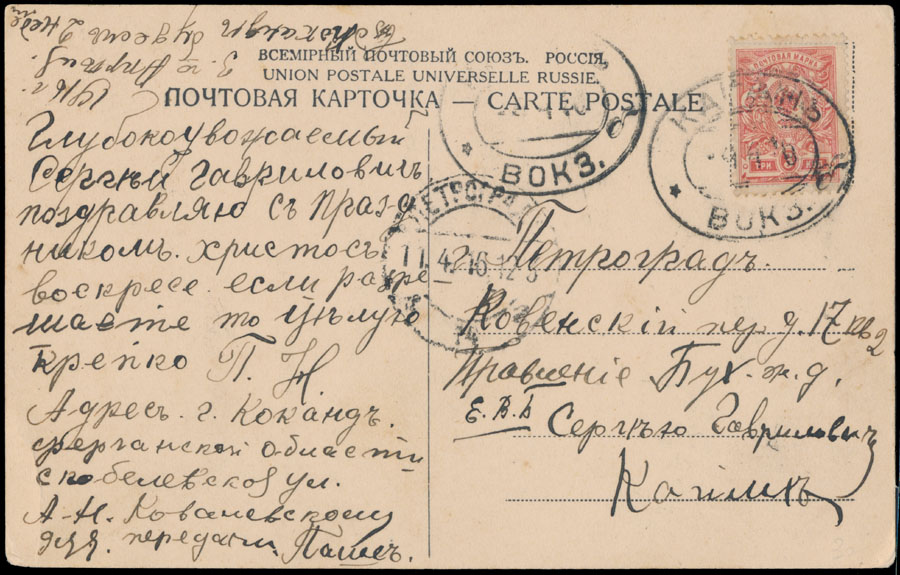 1916 г.
3.го Апрѣля
Кокандъ будемъ 2 нед
ВСЕМІРНЫЙ ПОЧТОВЫЙ СОЮЗЪ. РОССІЯ.
UNION POSTALE UNIVERSELLE RUSSIE.
ПОЧТОВАЯ КАРТОЧКА — CARTE POSTALE
Глубокоуважаемый
Сергѣй Гаврилович
поздравляю съ празд
никомъ. христосъ
воскресе. если разре
шаете то цѣлую
крепко П. Н
Адресъ. г. Кокандъ.
ферганской области
скобелевской ул.
А-Н. Ковалевскому
для передачи Паше.
ПОЧТОВАЯ МАРКА
ТРИ
ВОКЗ. б
ВОКЗ. б
ПЕТРОГРАД
11 4 16 12
г. Петроградъ.
Ковенскій пер. д. 17 кв 2
Правленіе Бух. ж. д.
Е. В. Б
Сергѣю Гавриловичу